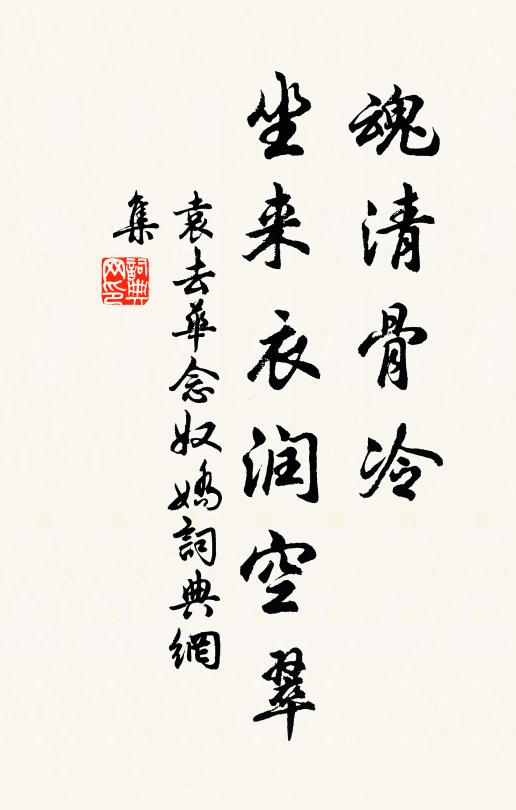 魂清骨冷
坐来衣润空翠
袁去華念奴嬌詞典網
集
詞典网印